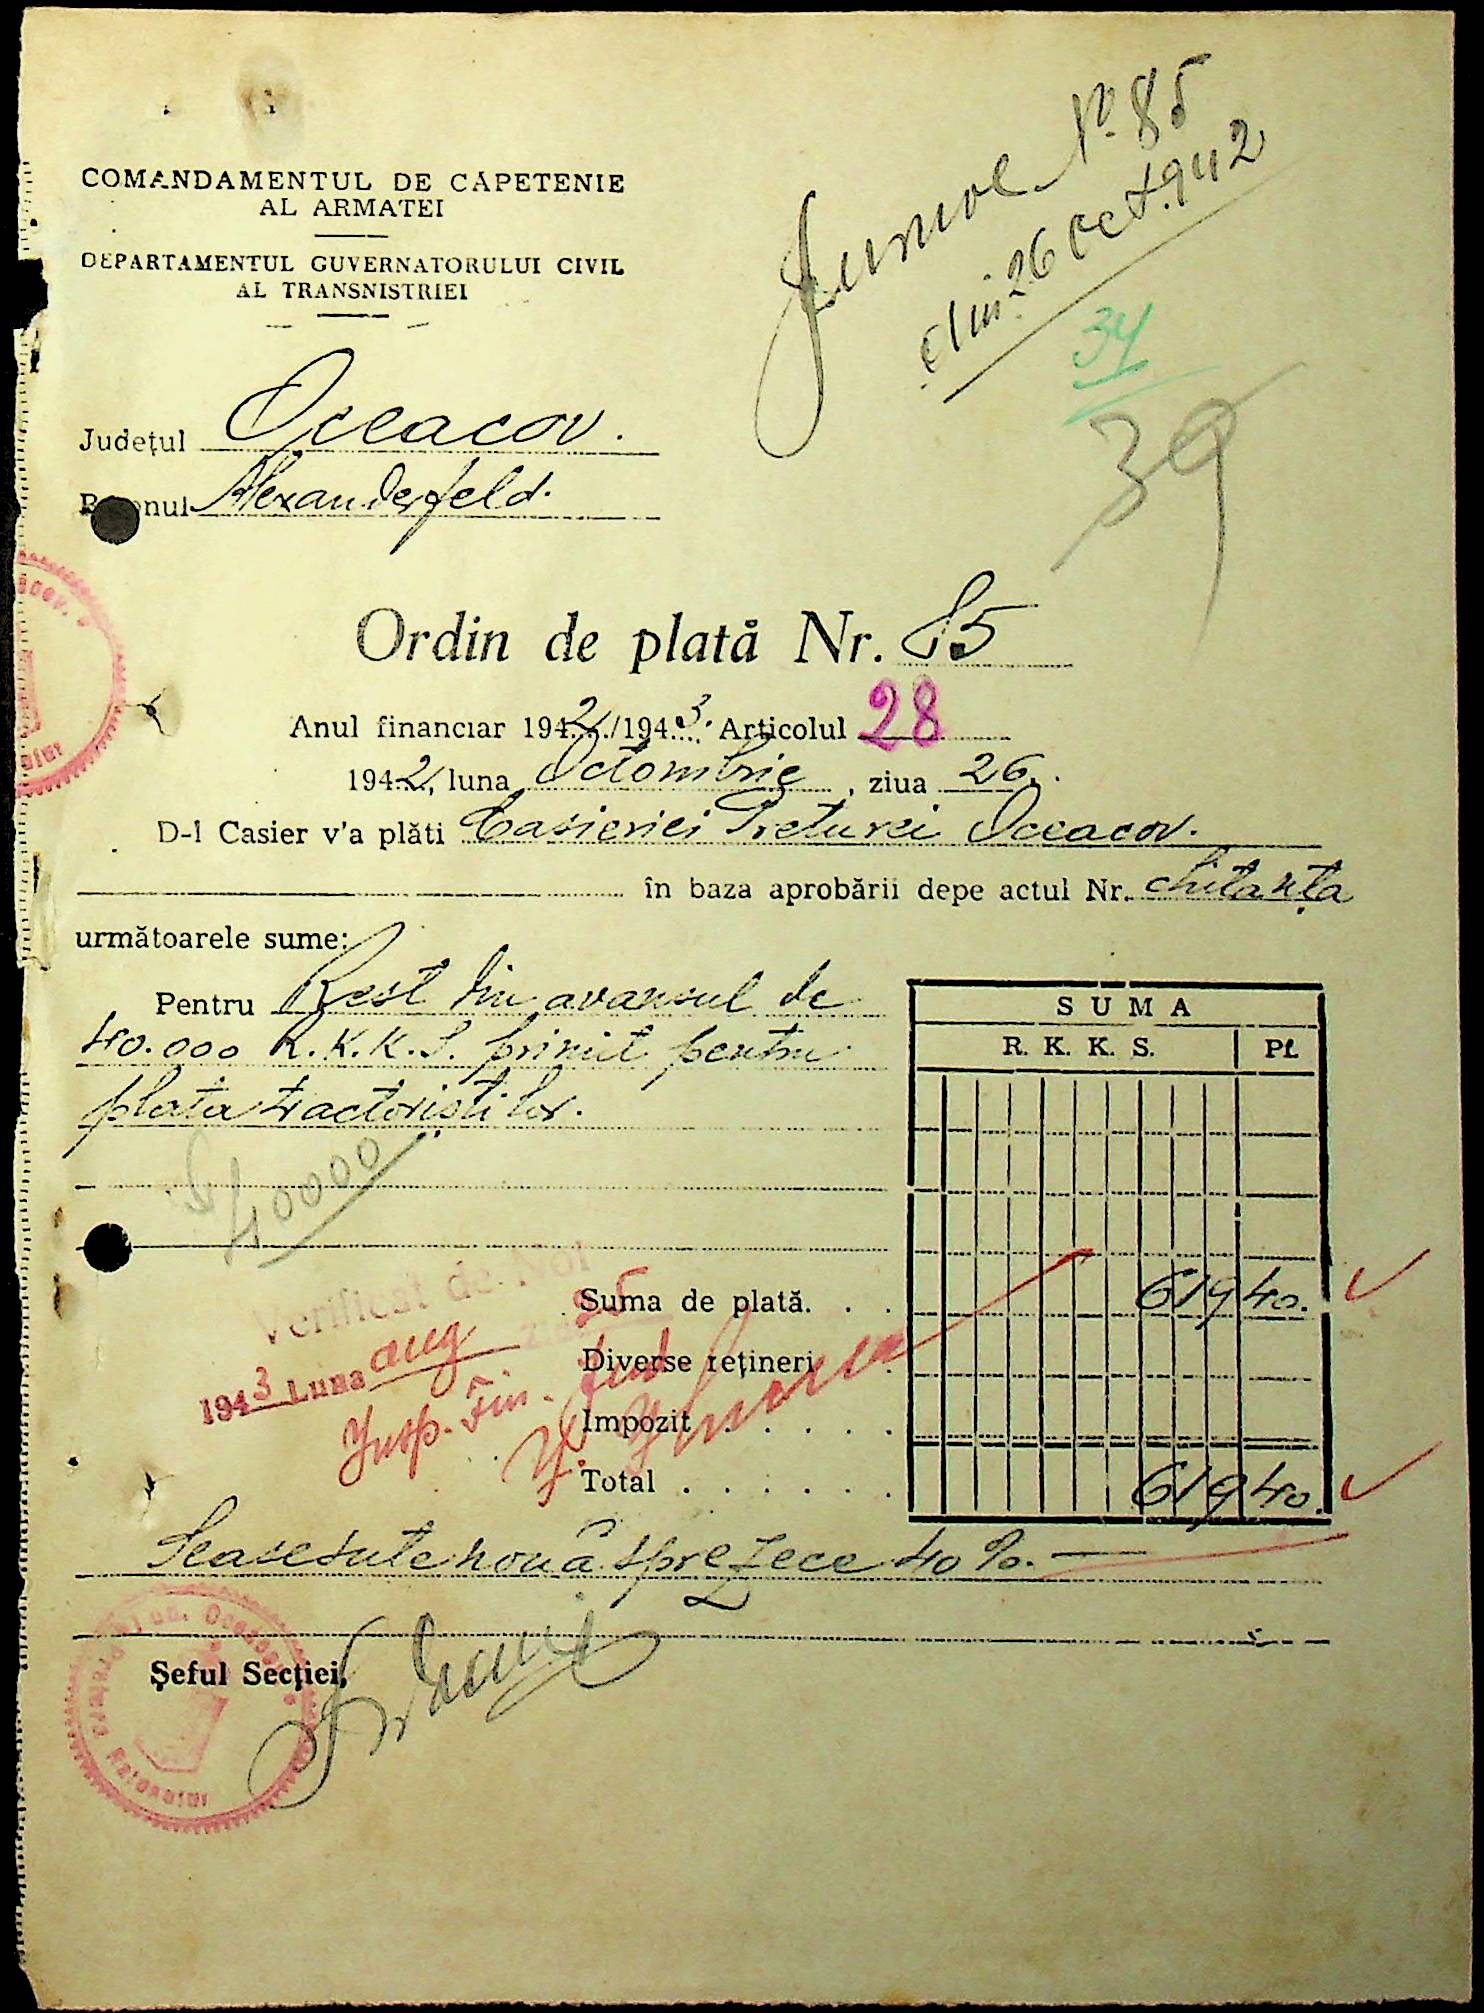 Jurnal No. 85
din 26 Oct. 1942
34
39
COMANDAMENTUL DE CAPETENIE
AL ARMATEI
DEPARTAMENTUL GUVERNATORULUI CIVIL
AL TRANSNISTRIEI
Județul Oceacov.
Raionul Alexanderfeld.
Ordin de plată Nr. 85
Anul financiar 1942/1943. Articolul 28
1942, luna Octombrie, ziua 26.
D-l Casier v'a plăti Casieriei Preturei Oceacov.
în baza aprobării depe actul Nr. chitanța
următoarele sume:
Pentru Rest din avansul de
40.000 R.K.K.S. primit pentru
plata tractoriștilor.
40000
SUMA
R. K. K. S. Pf.
Verificat de Noi
1943 Luna aug ziua 25
Insp. Fin.
Suma de plată. . . 619 40.
Diverse rețineri .
Impozit . . . . .
Total . . . . . . 619 40.
Seasesute nouă sprezece 40%.
Șeful Secției,